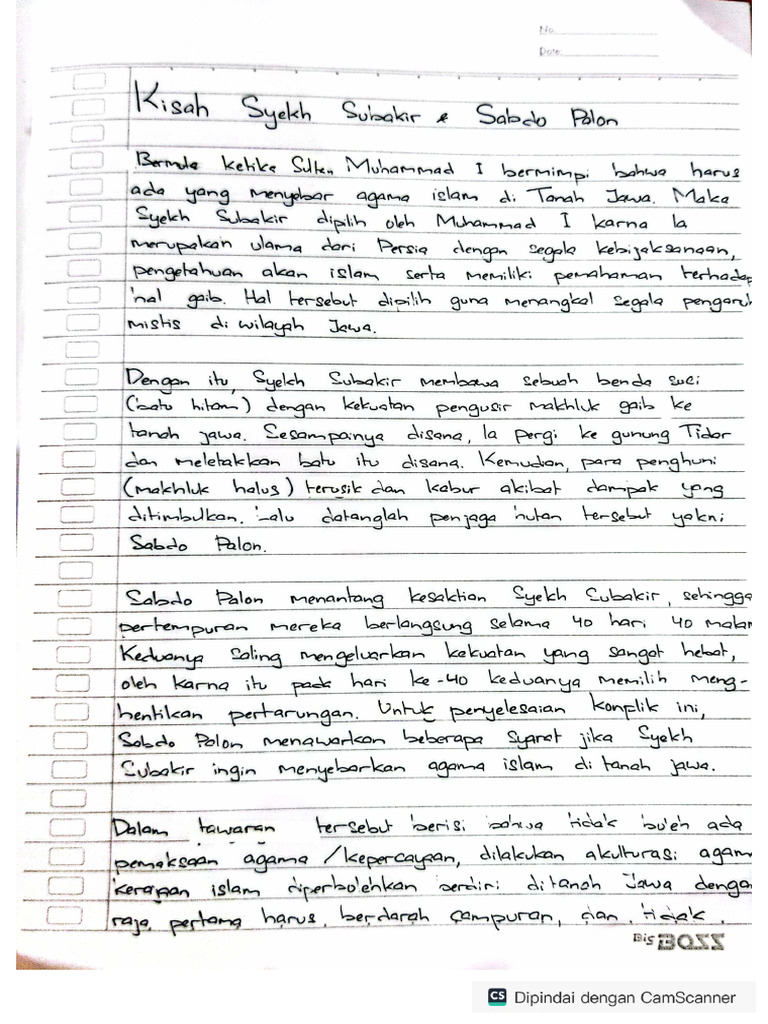 No.
Date:
Kisah Syekh Subakir & Sabdo Palon
Bermula ketika Sultan Muhammad I bermimpi bahwa harus
ada yang menyebar agama islam di Tanah Jawa. Maka
Syekh Subakir dipilih oleh Muhammad I karna Ia
merupakan ulama dari Persia dengan segala kebijaksanaan,
pengetahuan akan islam serta memiliki pemahaman terhadap
hal gaib. Hal tersebut dipilih guna menangkal segala pengaruh
mistis di wilayah Jawa.
Dengan itu, Syekh Subakir membawa sebuah benda suci
(batu hitam) dengan kekuatan pengusir makhluk gaib ke
tanah jawa. Sesampainya disana, Ia pergi ke gunung Tidar
dan meletakkan batu itu disana. Kemudian, para penghuni
(makhluk halus) terusik dan kabur akibat dampak yang
ditimbulkan. Lalu datanglah penjaga hutan tersebut yakni
Sabdo Palon.
Sabdo Palon menantang kesaktian Syekh Subakir, sehingga
pertempuran mereka berlangsung selama 40 hari 40 malam
Keduanya saling mengeluarkan kekuatan yang sangat hebat,
oleh karna itu pada hari ke-40 keduanya memilih meng-
hentikan pertarungan. Untuk penyelesaian konplik ini,
Sabdo Palon menawarkan beberapa syarat jika Syekh
Subakir ingin menyebarkan agama islam di tanah jawa.
Dalam tawaran tersebut berisi bahwa tidak boleh ada
pemaksaan agama /kepercayaan, dilakukan akulturasi agama
kerajaan islam diperbolehkan berdiri ditanah Jawa dengan
raja pertama harus berdarah campuran, dan tidak
Big BOSS
CS Dipindai dengan CamScanner